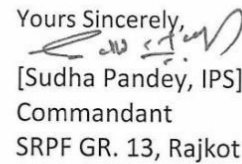 Yours Sincerely,
[Sudha Pandey, IPS]
Commandant
SRPF GR. 13, Rajkot